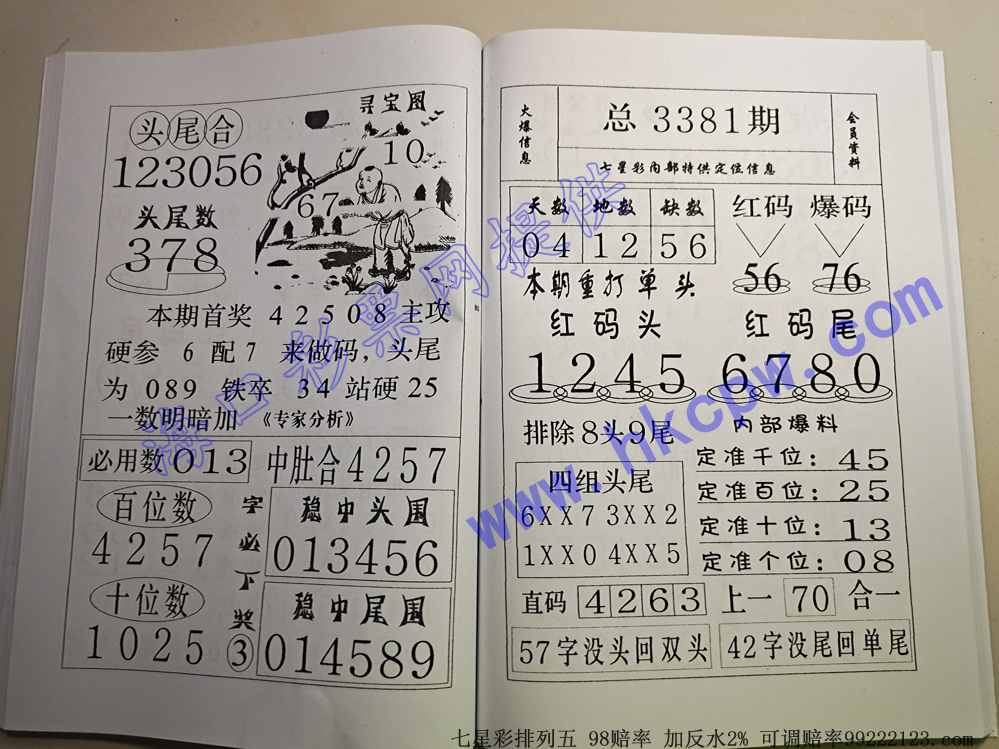 头尾合
123056
寻宝图
10
67
头尾数
378
本期首奖 42508 主攻
硬参 6 配 7 来做码，头尾
为 089 铁卒 34 站硬 25
一数明暗加 《专家分析》
必用数 013
中肚合4257
百位数
4257
十位数
1025
字必下奖③
稳中头围
013456
稳中尾围
014589
火爆信息
总 3381期
七星彩内部特供定位信息
会员资料
天数 地数 缺数
04 12 56
红码 爆码
56 76
本期重打单头
红码头 红码尾
1245 6780
排除8头9尾
四组头尾
6XX7 3XX2
1XX0 4XX5
内部爆料
定准千位：45
定准百位：25
定准十位：13
定准个位：08
直码 4263 上一 70 合一
57字没头回双头
42字没尾回单尾
海口彩票网提供
www.hkcpw.com
七星彩排列五 98赔率 加反水2% 可调赔率99222123.com